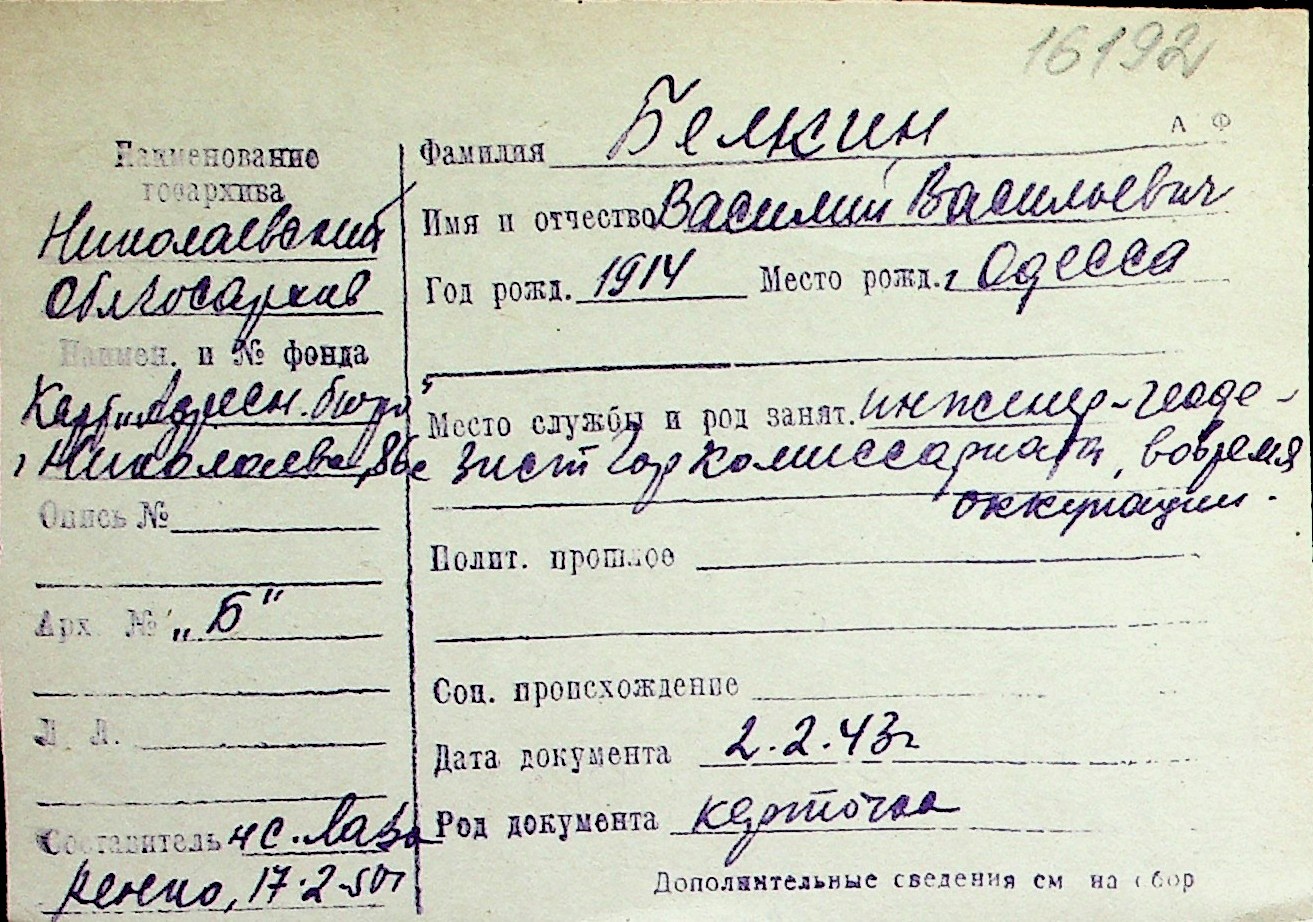 16192
А Ф
Наименование
госархива
Николаевский
Облгосархив
Наимен. и № фонда
Карт. „Адресн. бюро"
г Николаева,
Опись №
Арх. № „Б"
Л. Л.
Составитель нс. Лаза
ренко, 17.2-50г
Фамилия Белкин
Имя и отчество Василий Васильевич
Год рожд. 1914 Место рожд. г Одесса
Место службы и род занят. инженер-геоде-
зист Горкомиссариата, вовремя
оккупации.
Полит. прошлое
Соц. происхождение
Дата документа 2.2.43г
Род документа карточка
Дополнительные сведения см на обор